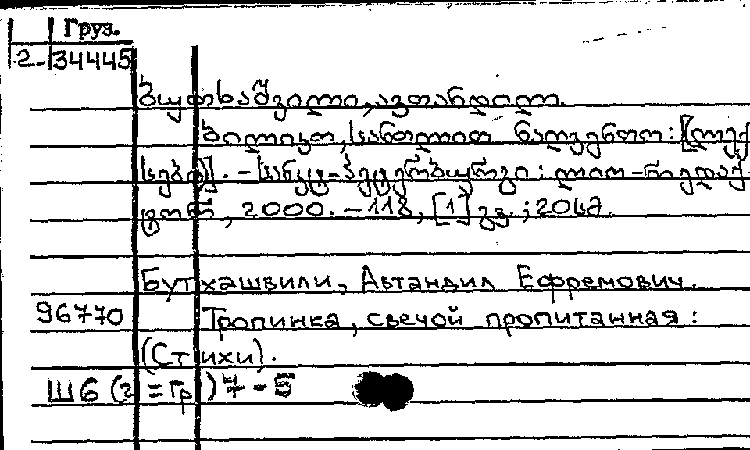 Груз.
2-34445
ბუთხაშვილი, ავთანდილ.
ბილიკო, სანთლით ნაღვენთო: [ლექ
სები]. - სანკტ-პეტერბურგი: ლიო-რედაქ-
ტორ, 2000. - 118, [1] გვ.; 20სმ.
Бутхашвили, Автандил Ефремович.
96770 Тропинка, свечой пропитанная:
(Стихи).
Ш6(2=Гр)7-5